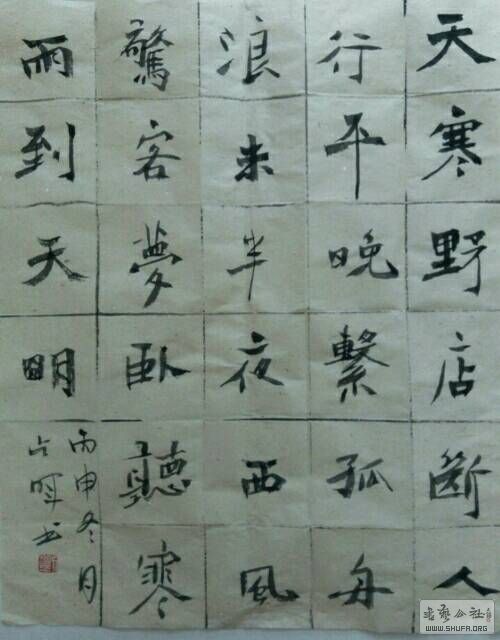 天寒野店断人
行平晚繫孤舟
浪未半夜西風
驚客夢臥聽寒
雨到天明
丙申冬月
书
书艺公社
WWW.SHUFA.ORG